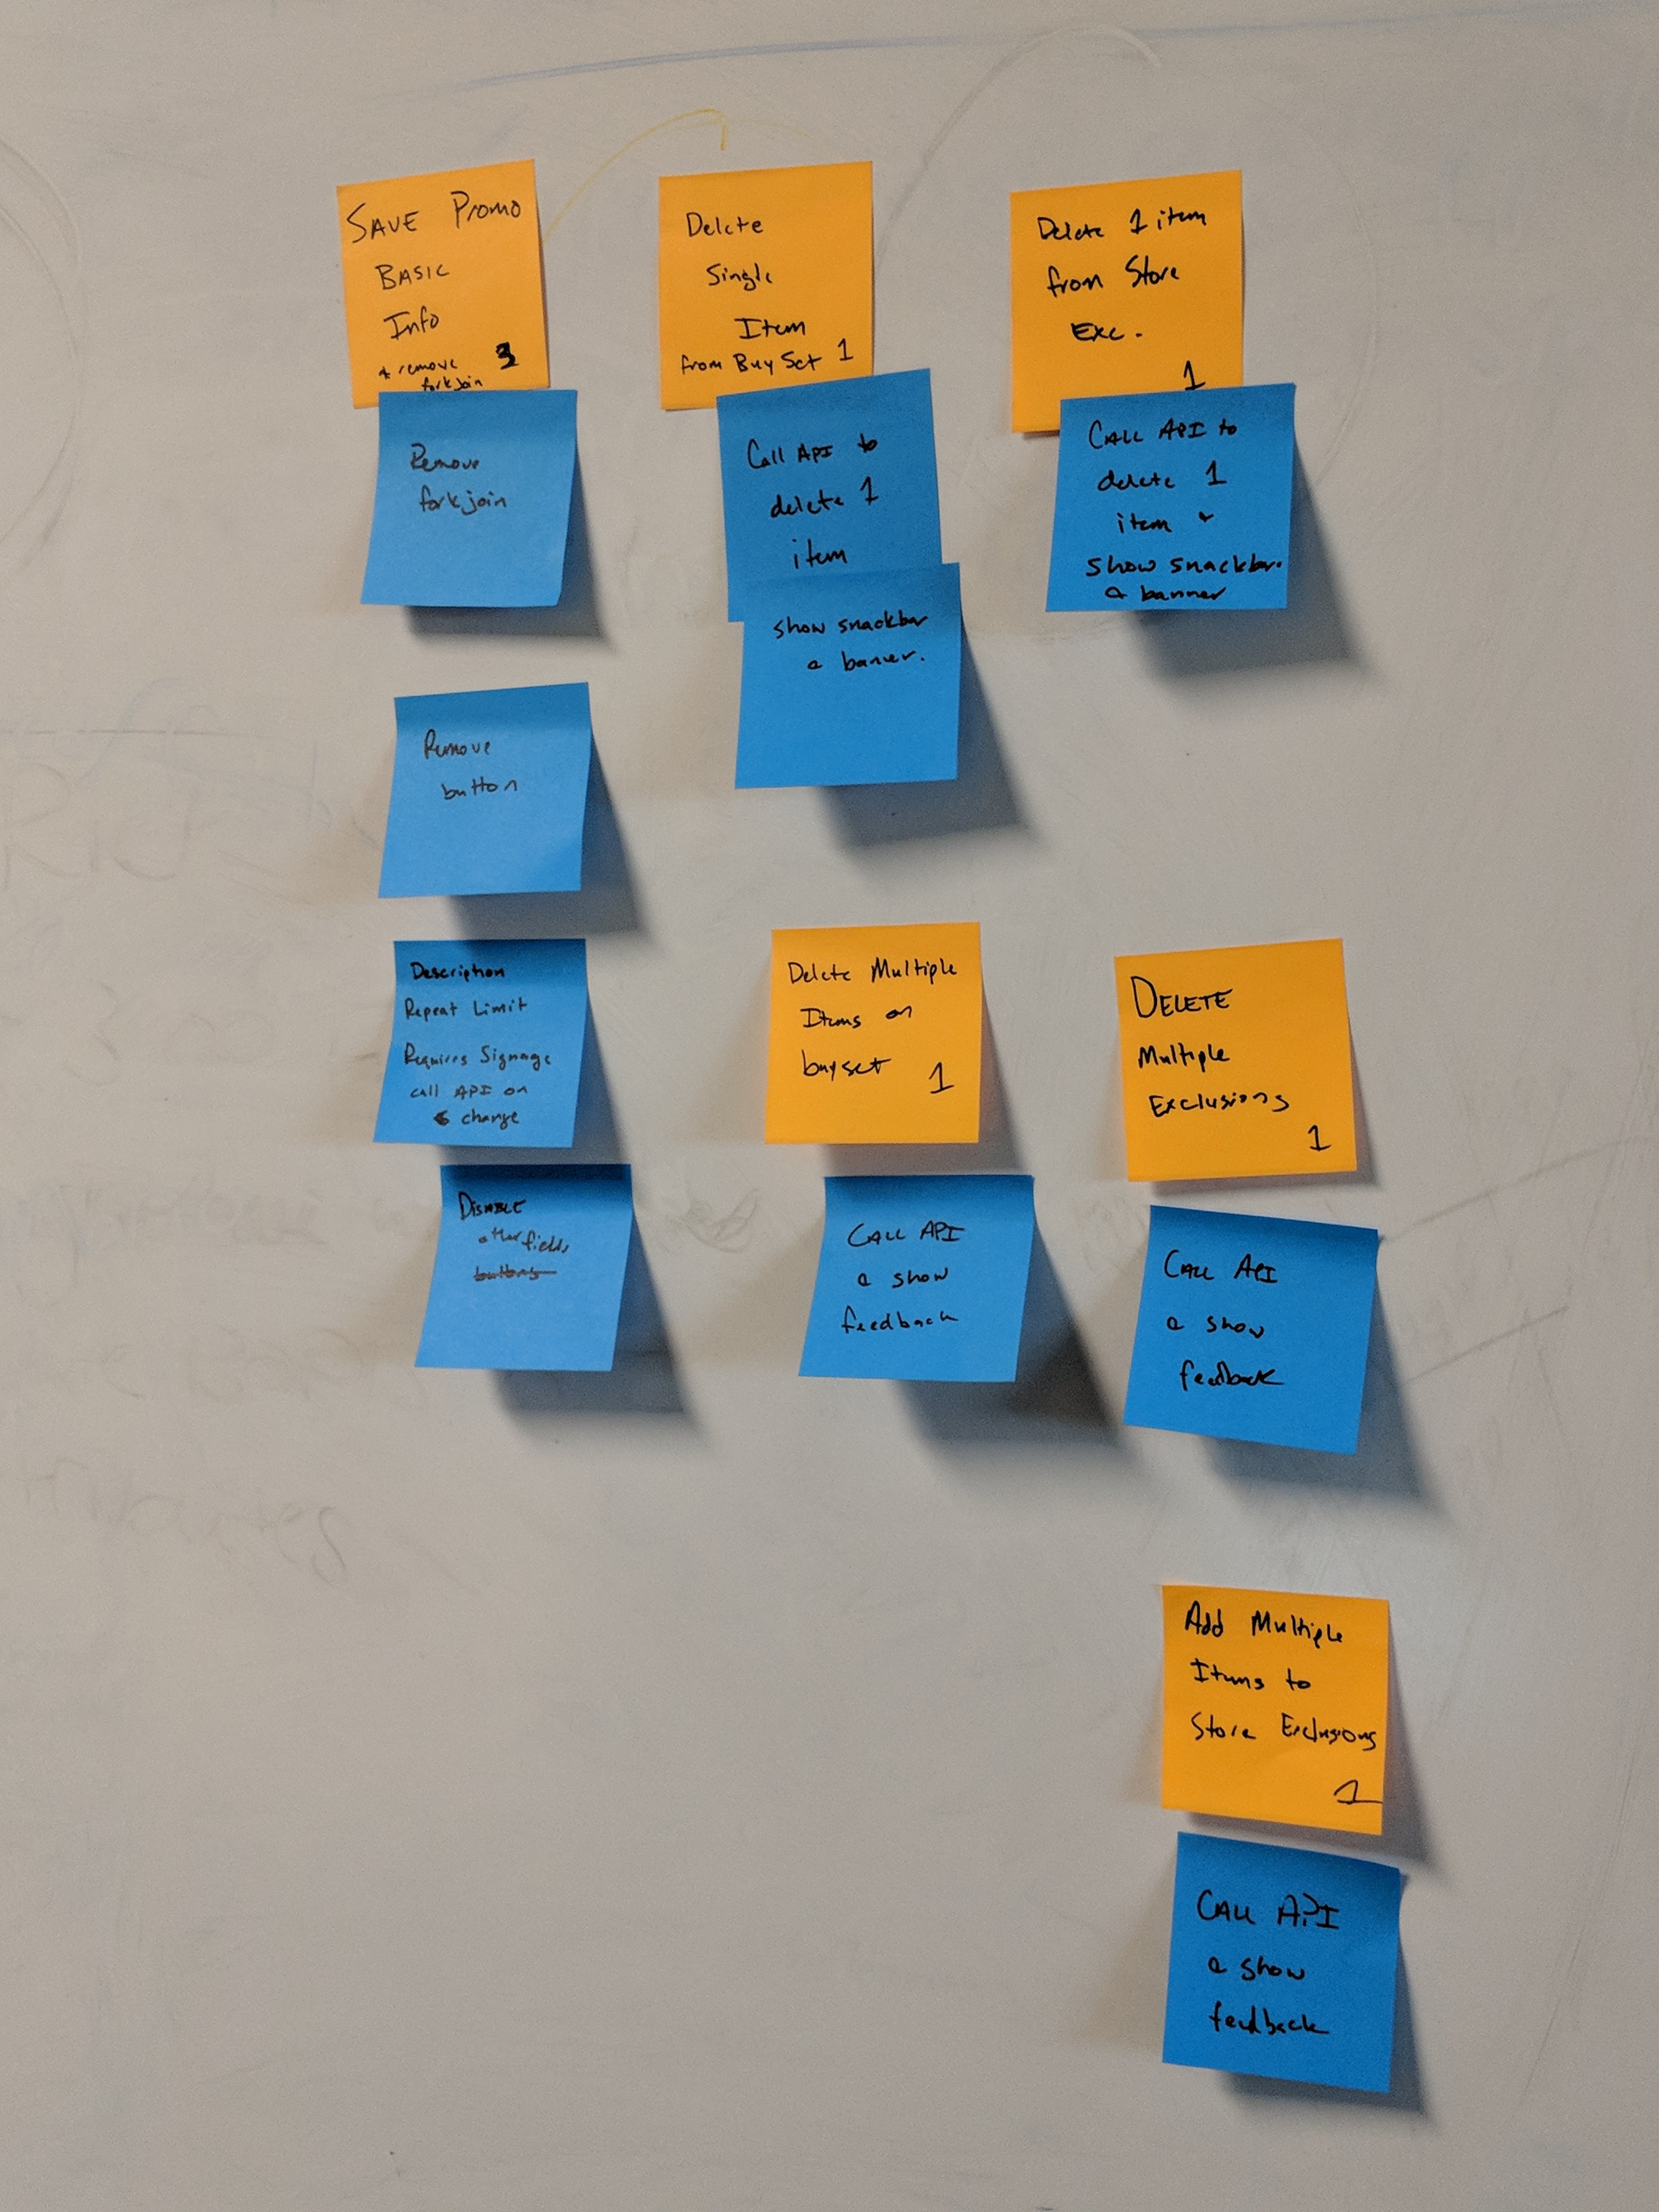 SAVE Promo
BASIC
Info
+ remove 3
forkjoin
Remove
forkjoin
Remove
button
Description
Repeat Limit
Requires Signage
call API on
change
DISABLE
other fields
buttons
Delete
Single
Item
from Buy Set 1
Call API to
delete 1
item
show snackbar
a banner.
Delete Multiple
Items on
buyset 1
CALL API
a show
feedback
Delete 1 item
from Store
Exc.
1
CALL API to
delete 1
item +
show snackbar
a banner
DELETE
Multiple
Exclusions
1
CALL API
a show
feedback
Add Multiple
Items to
Store Exclusions
1
CALL API
a show
feedback